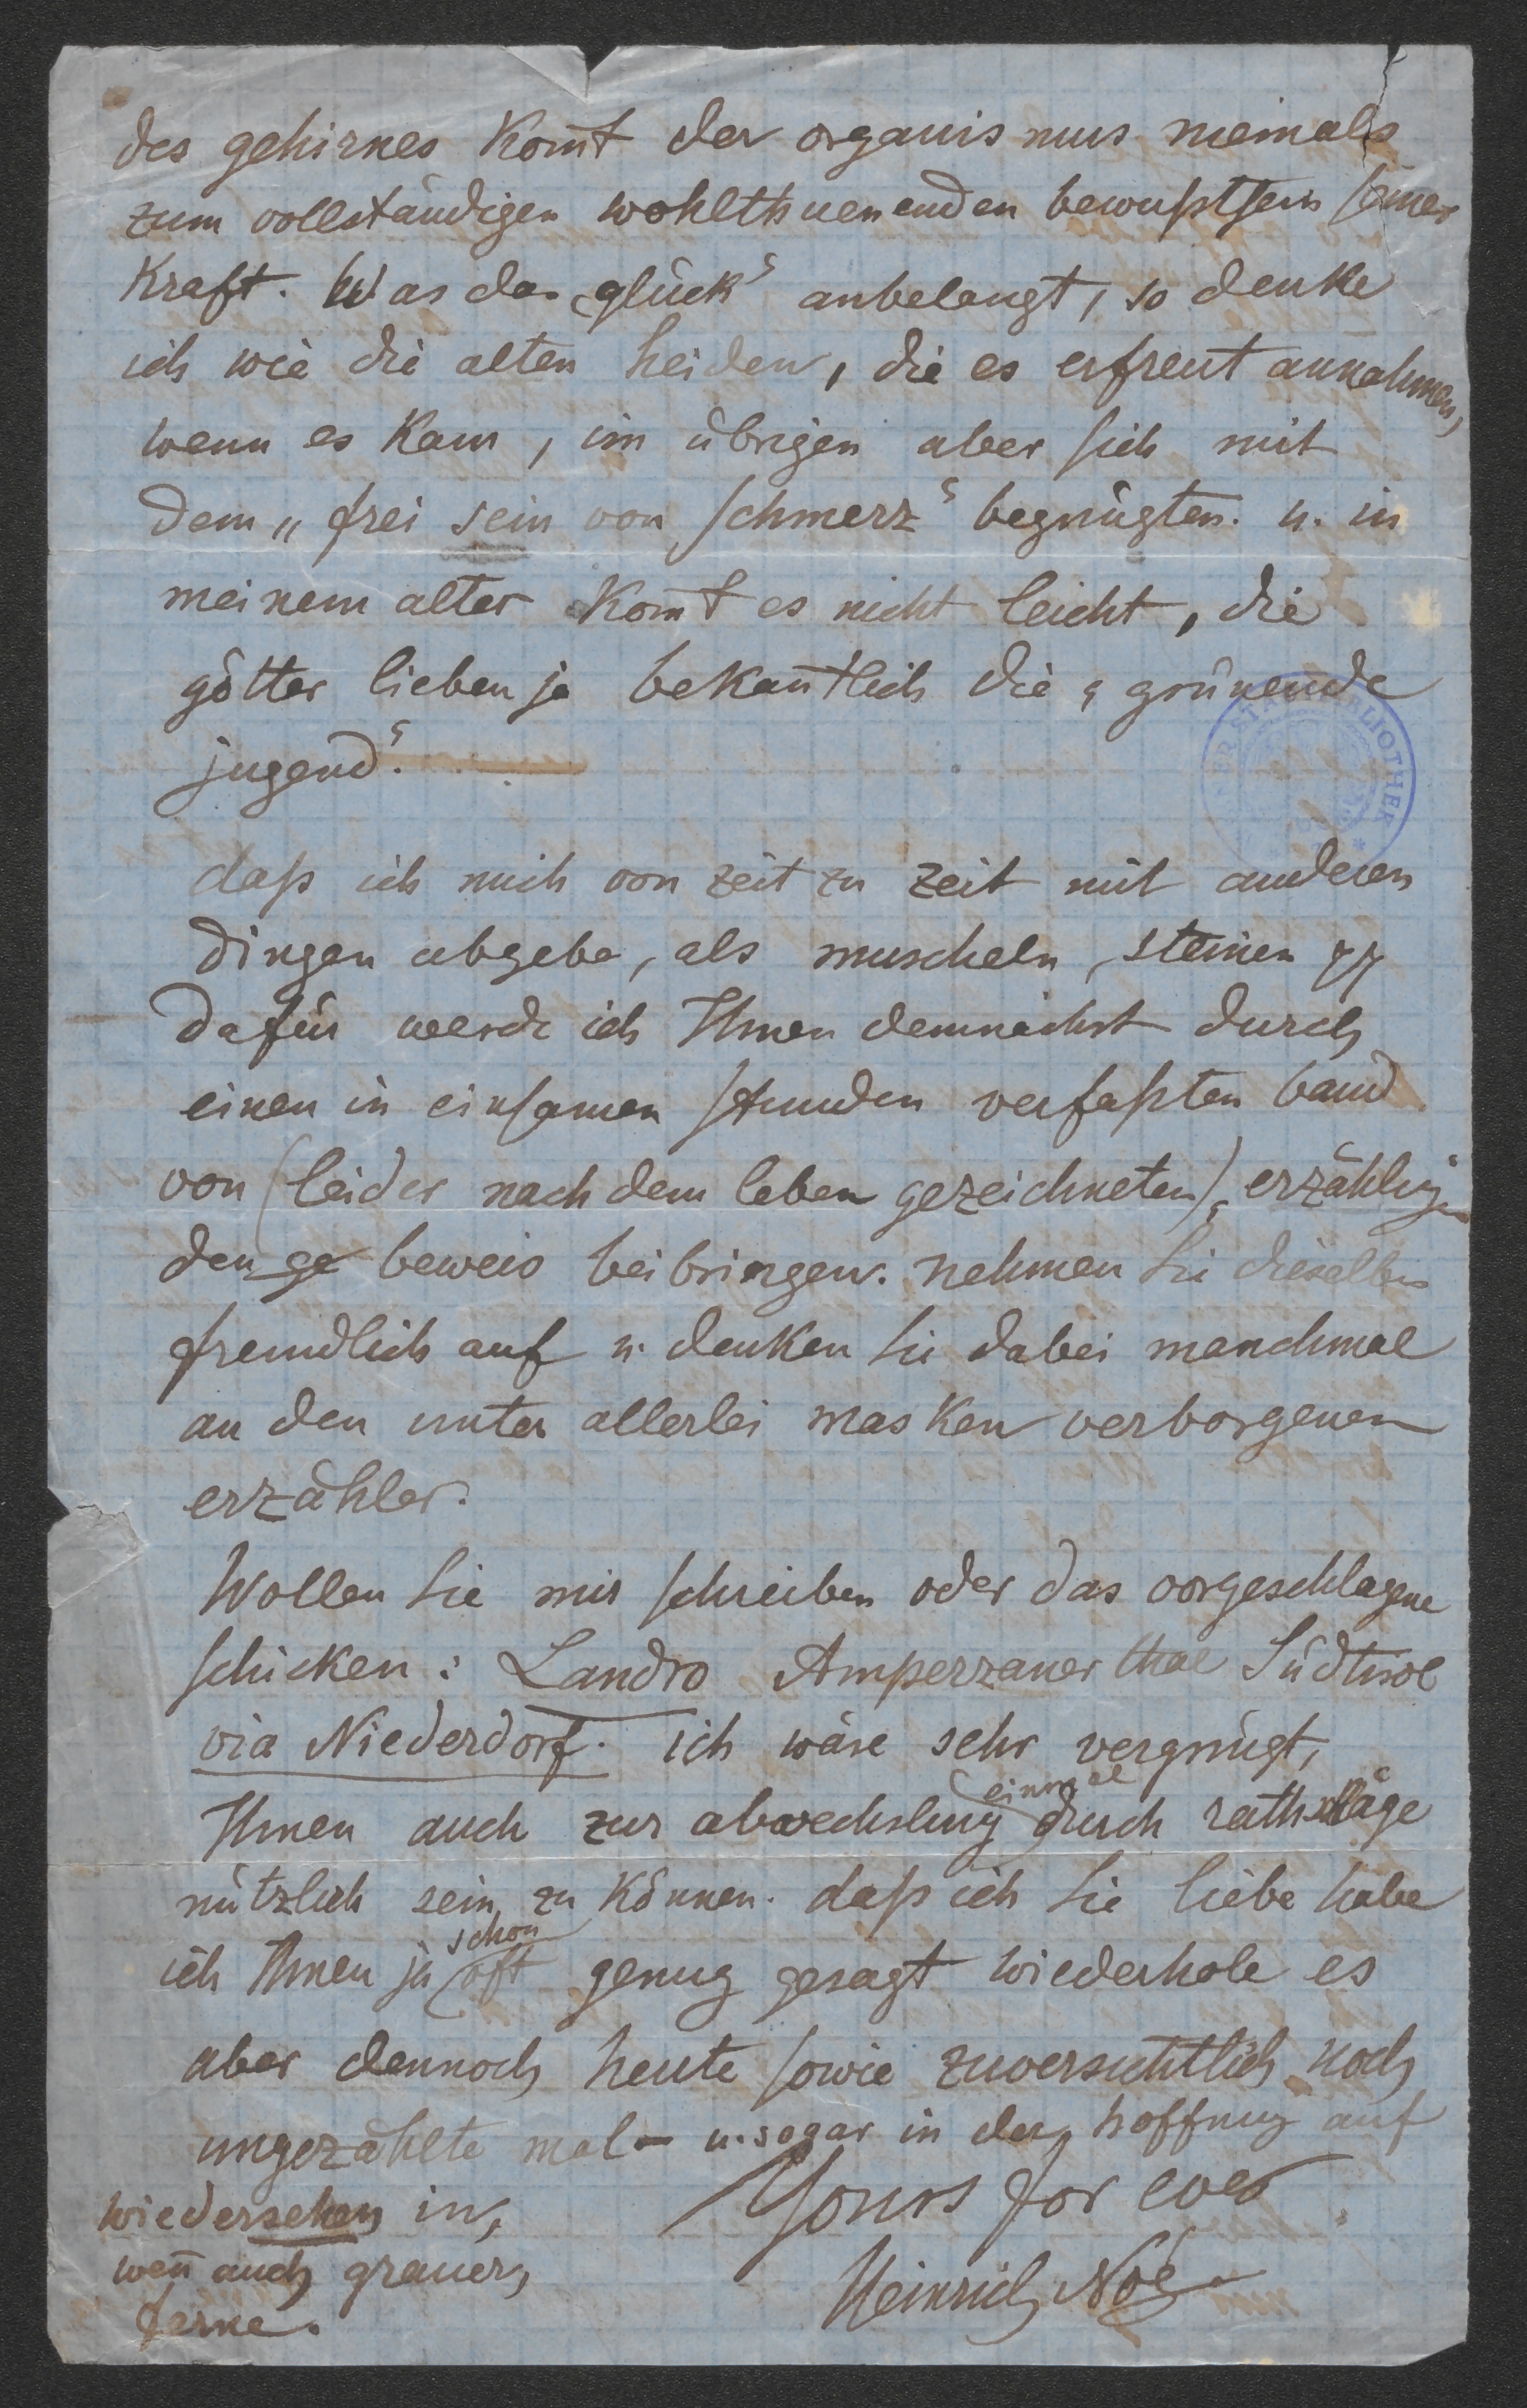 des gehirnes kom̄t der organismus niemals
zum vollständigen wohlthuenenden bewußtsein seiner
kraft. Was das „glück“ anbelangt, so denke
ich wie die alten heiden, die es erfreut annahmen,
wenn es kam, im übrigen aber sich mit
dem „frei sein von schmerz“ begnügten. u. in
meinem alter kom̄t es nicht leicht, die
götter lieben ja bekan̄tlich die „grünende
jugend“.
BIBLIOTHEK
daß ich mich von zeit zu zeit mit anderen
dingen abgebe, als muscheln, steinen pp
dafür werde ich Ihnen demnächst durch
einen in einsamen stunden verfaßten band
von (leider nach dem leben gezeichneten) erzählgn
den ge beweis beibringen. nehmen Sie dieselben
freundlich auf u. denken Sie dabei manchmal
an den unter allerlei masken verborgenen
erzähler.
Wollen Sie mir schreiben oder das vorgeschlagene
schicken: Landro Amperzaner thal Südtirol
via Niederdorf. ich wäre sehr vergnügt,
einmal
Ihnen auch zur abwechslung durch rathschläge
nützlich sein zu können. daß ich Sie liebe habe
schon
ich Ihnen ja oft genug gesagt wiederhole es
aber dennoch heute sowie zuversichtlich noch
ungezählte mal – u. sogar in der hoffnung auf
wiedersehen in,
wen̄ auch grauer,
ferne.
Yours for ever
Heinrich Noë